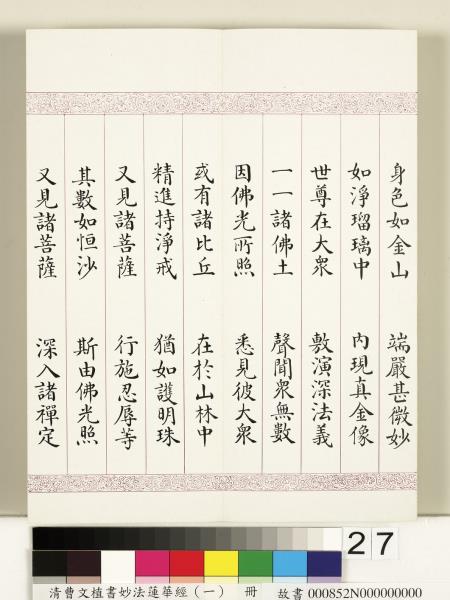 身色如金山　端嚴甚微妙
如淨瑠璃中　內現真金像
世尊在大眾　敷演深法義
一一諸佛土　聲聞眾無數
因佛光所照　悉見彼大眾
或有諸比丘　在於山林中
精進持淨戒　猶如護明珠
又見諸菩薩　行施忍辱等
其數如恒沙　斯由佛光照
又見諸菩薩　深入諸禪定
27
清曹文植書妙法蓮華經（一）　冊　故書 000852N000000000